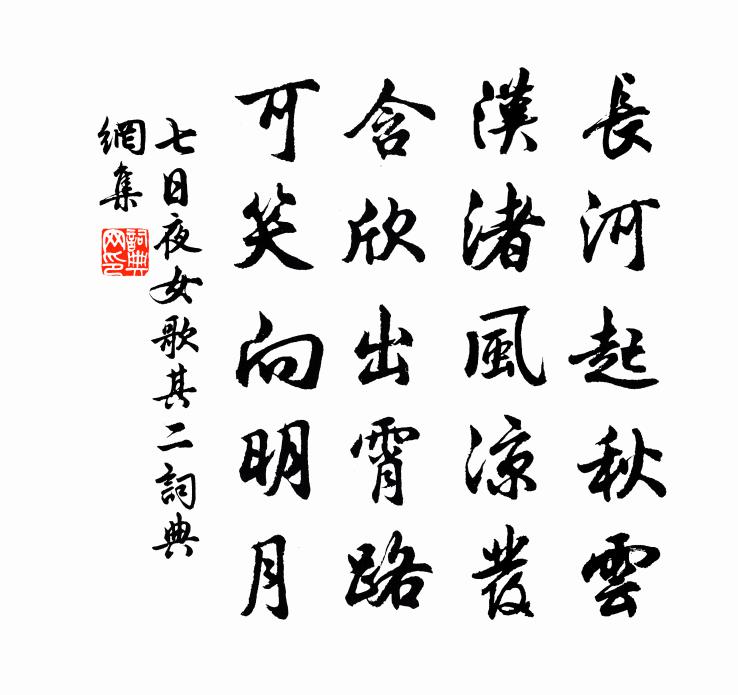 長河起秋雲
漢渚風涼發
含欣出霄路
可笑向明月
七日夜女歌其二詞典
網集
詞典網印